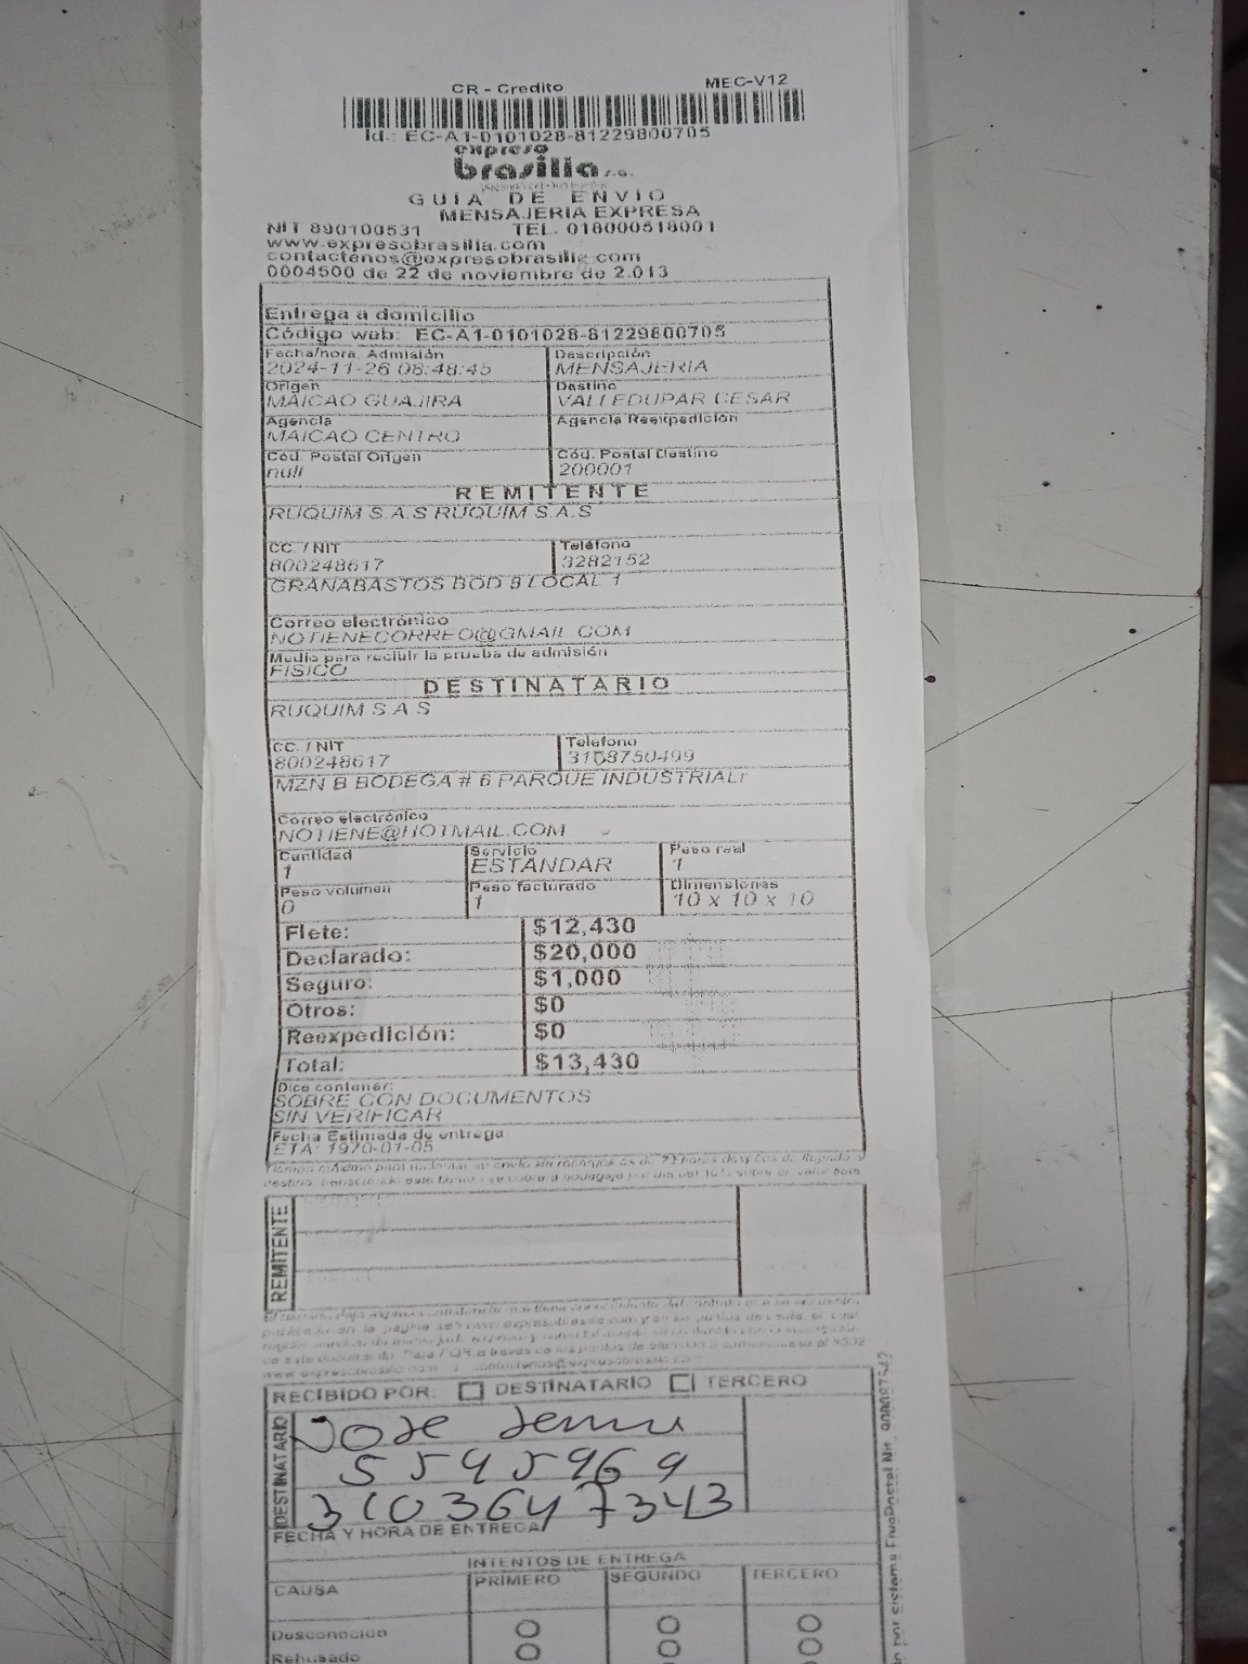 CR - Credito MEC-V12
Id.: EC-A1-0101028-81229800705
expreso
brasilia s.a.
GUIA DE ENVIO
MENSAJERIA EXPRESA
NIT 890100531 TEL. 018000518001
www.expresobrasilia.com
contactenos@expresobrasilia.com
0004500 de 22 de noviembre de 2.013
Entrega a domicilio
Código web: EC-A1-0101028-81229800705
Fecha/hora Admisión Descripción
2024-11-26 08:48:45 MENSAJERIA
Origen Destino
MAICAO GUAJIRA VALLEDUPAR CESAR
Agencia Agencia Reexpedición
MAICAO CENTRO
Cód. Postal Origen Cód. Postal Destino
null 200001
REMITENTE
RUQUIM S.A.S RUQUIM S.A.S
CC. / NIT Teléfono
800248617 3282152
GRANABASTOS BOD 9 LOCAL 1
Correo electrónico
NOTIENECORREO@GMAIL.COM
Medio para recibir la prueba de admisión
FISICO
DESTINATARIO
RUQUIM S A S
CC. / NIT Telefono
800248617 3168750499
MZN B BODEGA # 6 PARQUE INDUSTRIAL
Correo electrónico
NOTIENE@HOTMAIL.COM
Cantidad Servicio Peso real
1 ESTANDAR 1
Peso volumen Peso facturado Dimensiones
0 1 10 x 10 x 10
Flete: $12,430
Declarado: $20,000
Seguro: $1,000
Otros: $0
Reexpedición: $0
Total: $13,430
Dice contener:
SOBRE CON DOCUMENTOS
SIN VERIFICAR
Fecha Estimada de entrega
ETA: 1970-01-05
REMITENTE
RECIBIDO POR: DESTINATARIO TERCERO
DESTINATARIO
Jose
310 3647343
FECHA Y HORA DE ENTREGA
INTENTOS DE ENTREGA
CAUSA PRIMERO SEGUNDO TERCERO
Desconocido
Rehusado